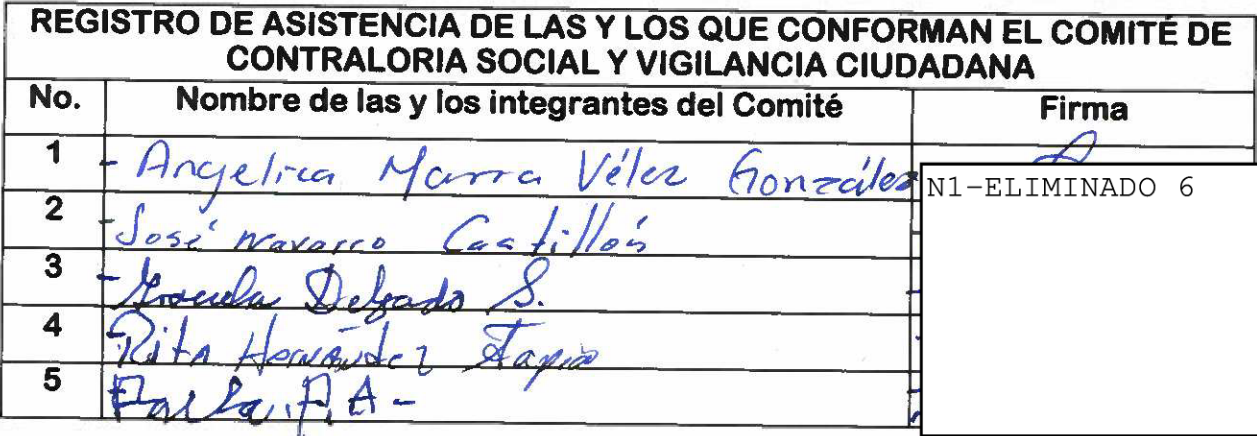 REGISTRO DE ASISTENCIA DE LAS Y LOS QUE CONFORMAN EL COMITÉ DE
CONTRALORIA SOCIAL Y VIGILANCIA CIUDADANA
No. Nombre de las y los integrantes del Comité Firma
1 - Angelica Vélez González
N1-ELIMINADO 6
2 - José Navarro Castillón
3 - Delgado S.
4 - Rita Hernández Tapia
5